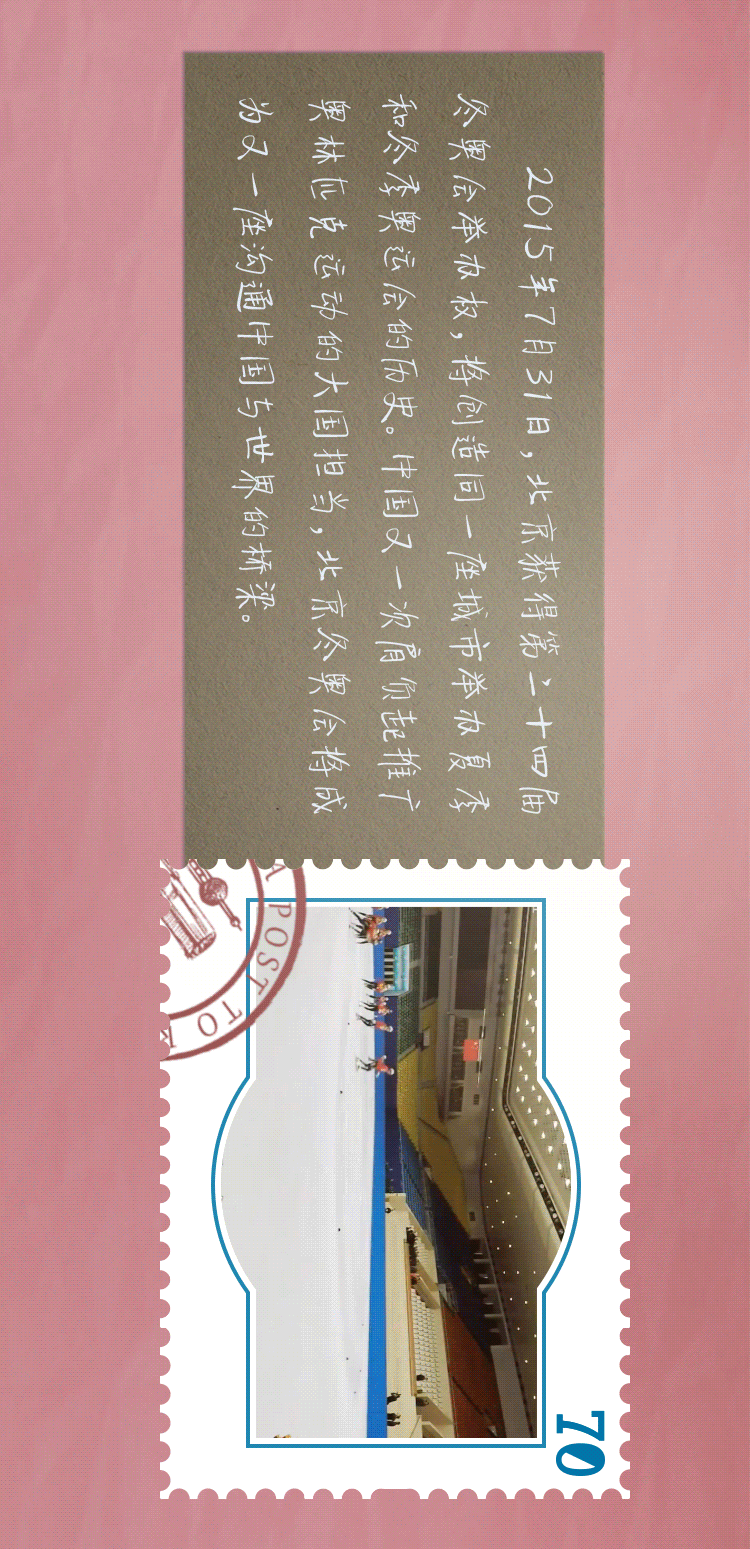 2015年7月31日，北京获得第二十四届
冬奥会举办权，将创造同一座城市举办夏季
和冬季奥运会的历史。中国又一次肩负起推广
奥林匹克运动的大国担当，北京冬奥会将成
为又一座沟通中国与世界的桥梁。
POST TO
70